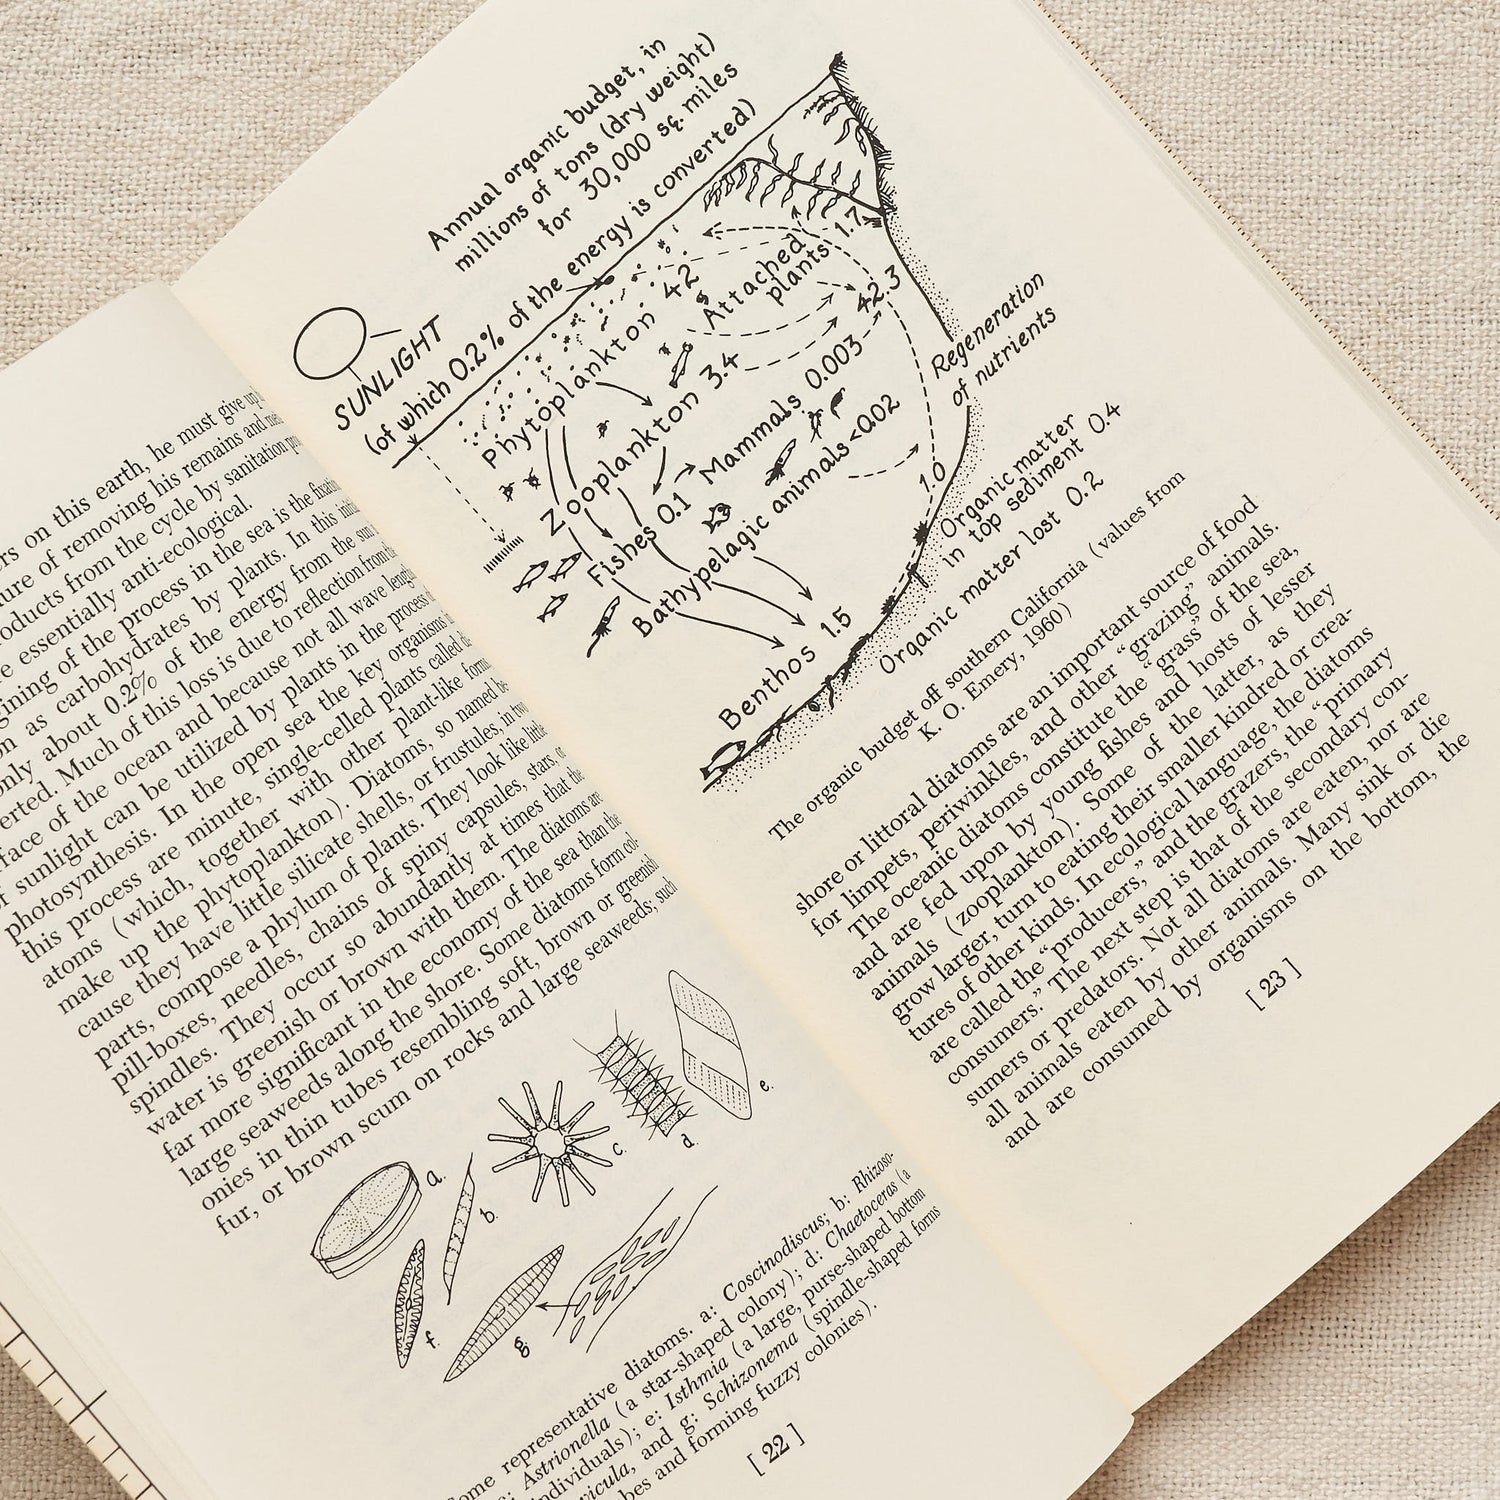 ers on this earth, he must give up
ture of removing his remains and
oducts from the cycle by sanitation
e essentially anti-ecological.
gining of the process in the sea is the
on as carbohydrates by plants. In this
only about 0.2% of the energy from the sun
erted. Much of this loss is due to reflection from the
face of the ocean and because not all wave
of sunlight can be utilized by plants in the process of
photosynthesis. In the open sea the key organisms
this process are minute, single-celled plants called di-
atoms (which, together with other plant-like forms
make up the phytoplankton). Diatoms, so named be-
cause they have little silicate shells, or frustules, in two
parts, compose a phylum of plants. They look like little
pill-boxes, needles, chains of spiny capsules, stars, or
spindles. They occur so abundantly at times that the
water is greenish or brown with them. The diatoms are
far more significant in the economy of the sea than the
large seaweeds along the shore. Some diatoms form col-
onies in thin tubes resembling soft, brown or greenish
fur, or brown scum on rocks and large seaweeds; such
a.
b.
c.
d.
e.
f.
g.
ome representative diatoms. a: Coscinodiscus; b: Rhizoso-
c: Astrionella (a star-shaped colony); d: Chaetoceras (a
individuals); e: Isthmia (a large, purse-shaped bottom
vicula, and g: Schizonema (spindle-shaped forms
bes and forming fuzzy colonies).
[ 22 ]
Annual organic budget, in
millions of tons (dry weight)
for 30,000 sq. miles
SUNLIGHT
(of which 0.2% of the energy is converted)
Phytoplankton 42
Attached
plants 1.7
42.3
Zooplankton 3.4
Mammals 0.003
Fishes 0.1
Bathypelagic animals <0.02
1.0
Benthos 1.5
Regeneration
of nutrients
Organic matter
in top sediment 0.4
Organic matter lost 0.2
The organic budget off southern California (values from
K. O. Emery, 1960)
shore or littoral diatoms are an important source of food
for limpets, periwinkles, and other “grazing” animals.
The oceanic diatoms constitute the “grass” of the sea,
and are fed upon by young fishes and hosts of lesser
animals (zooplankton). Some of the latter, as they
grow larger, turn to eating their smaller kindred or crea-
tures of other kinds. In ecological language, the diatoms
are called the “producers,” and the grazers, the “primary
consumers.” The next step is that of the secondary con-
sumers or predators. Not all diatoms are eaten, nor are
all animals eaten by other animals. Many sink or die
and are consumed by organisms on the bottom, the
[ 23 ]